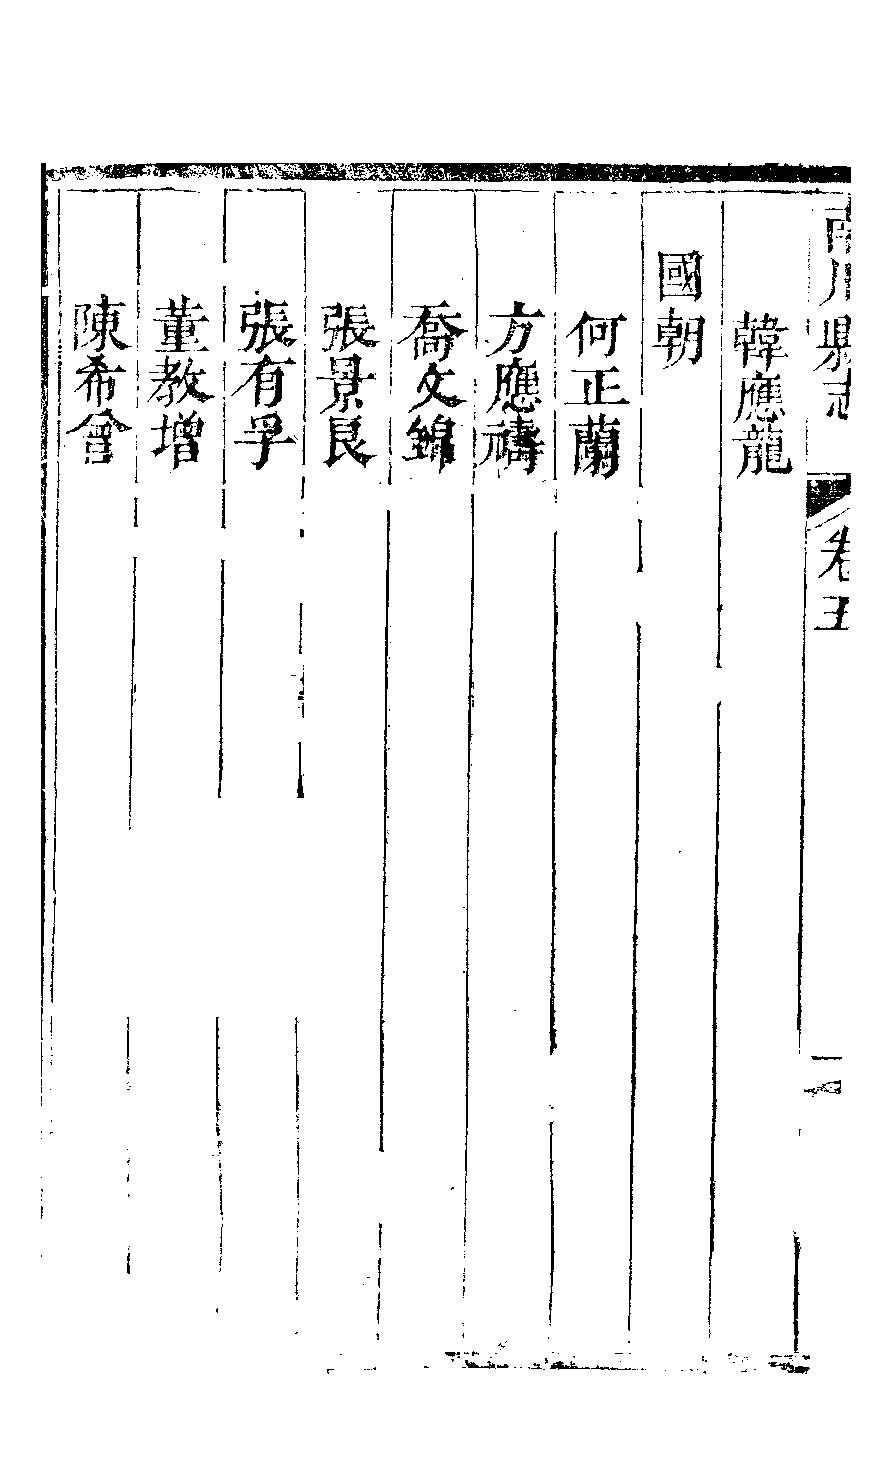 南川縣志 卷五
韓應龍
國朝
何正蘭
方應禱
喬文錦
張景良
張有孚
董教增
陳希曾